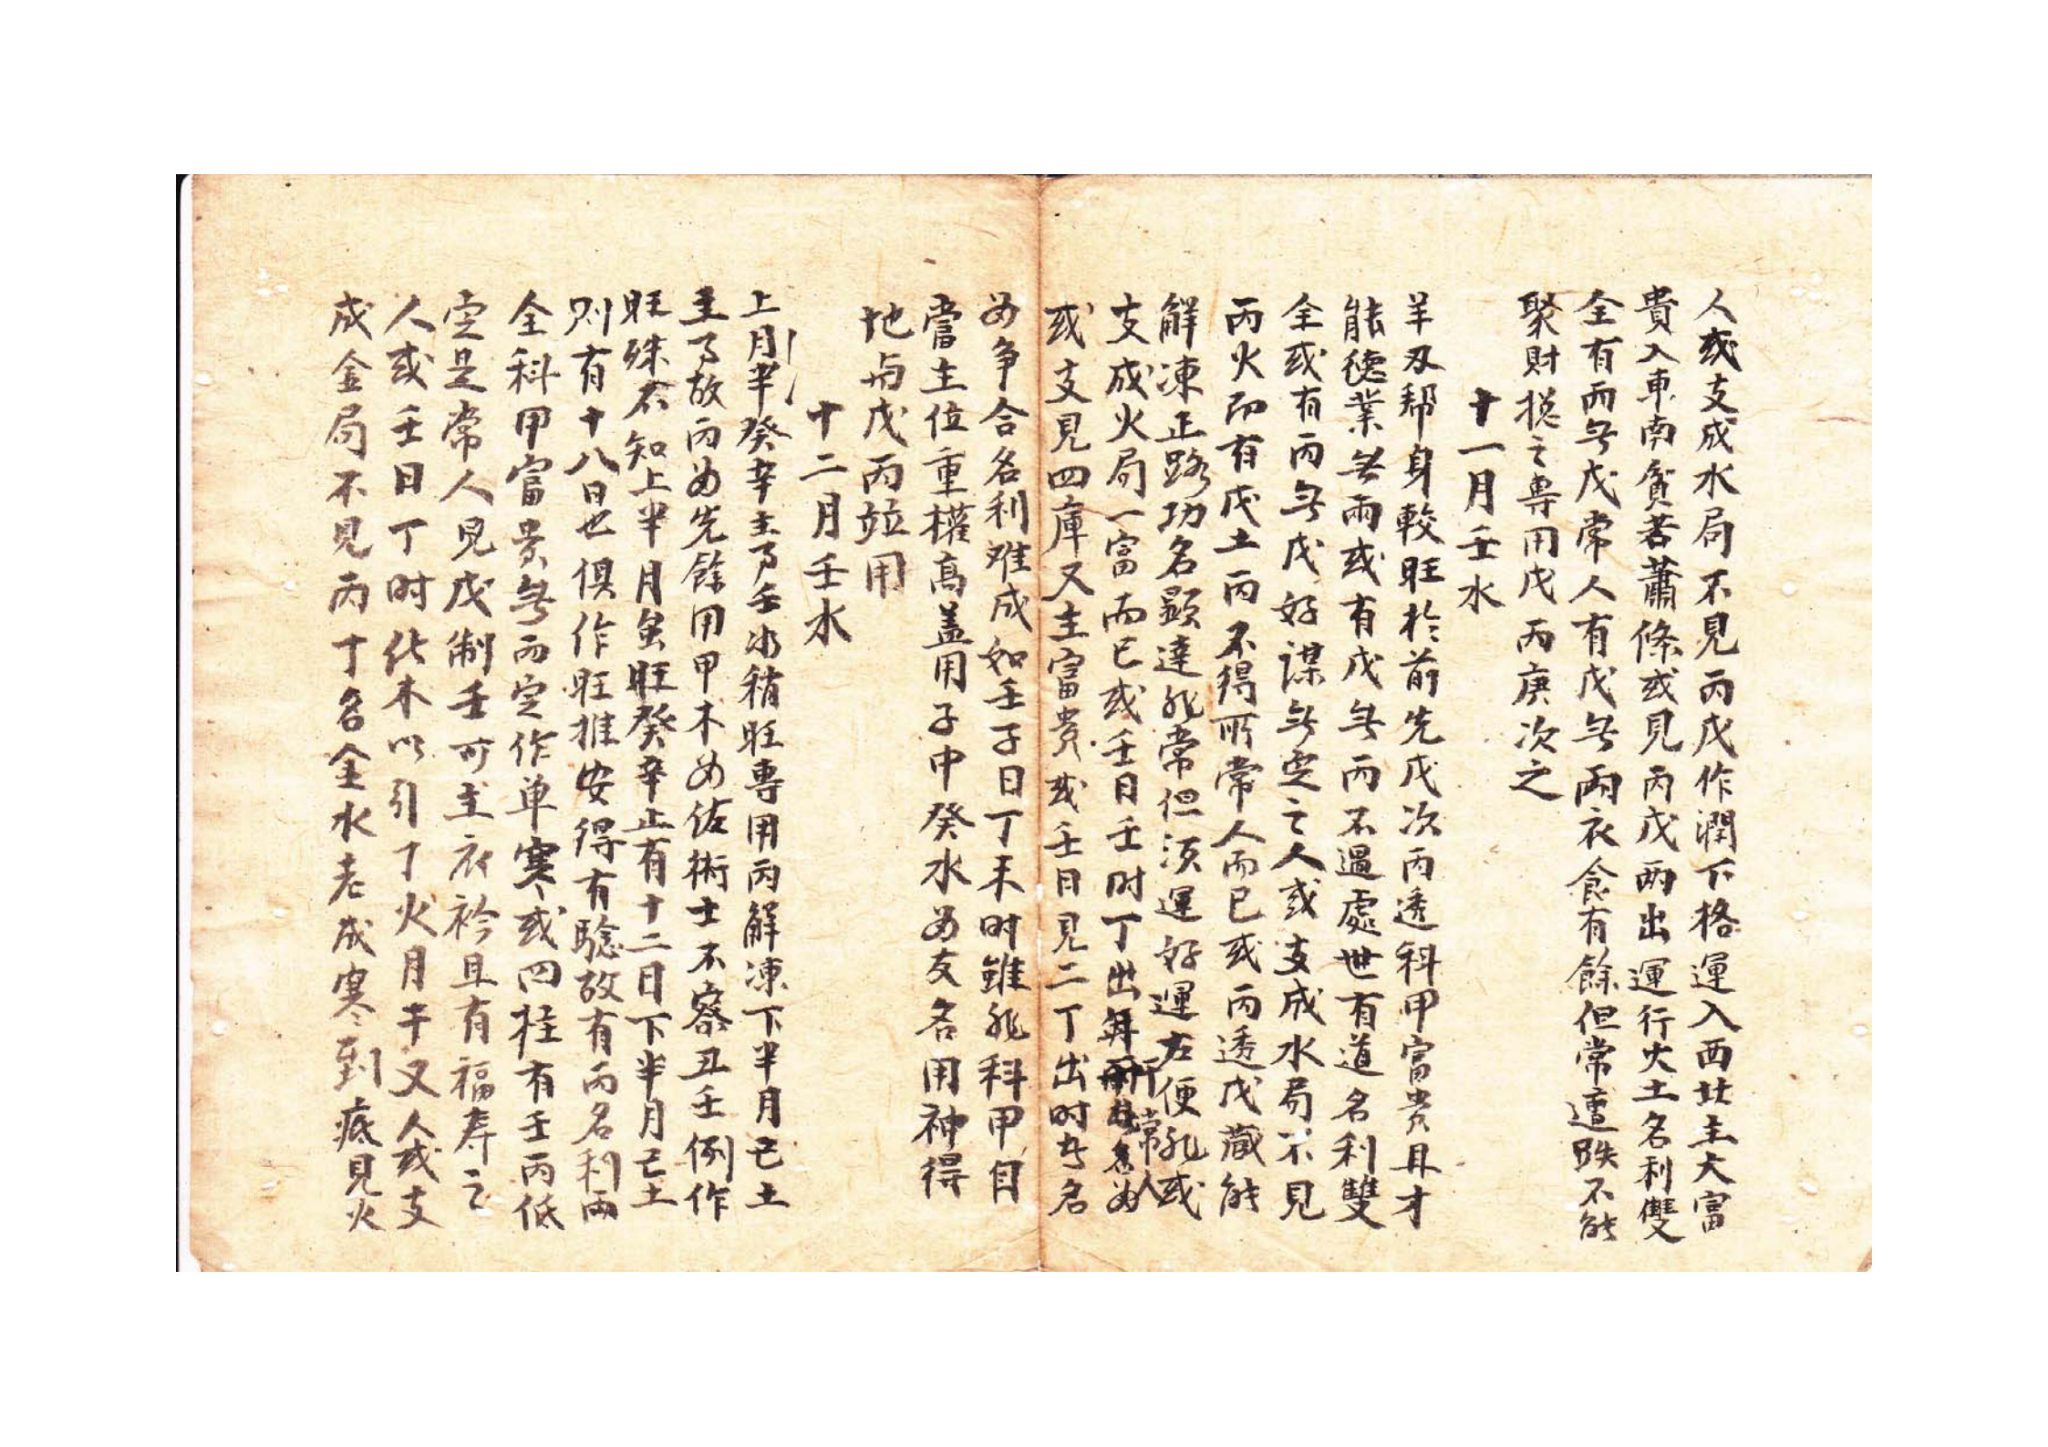 人或支成水局不見丙戊作潤下格運入西北主大富
貴入東南貧若蕭條或見丙戊兩出運行火土名利雙
全有丙無戊常人有戊無丙衣食有餘但常遭跌不能
聚財捴之專用戊丙庚次之
十一月壬水
羊刃帮身較旺於前先戊次丙透科甲富貴且才
能德業無兩或有戊無丙不過處世有道名利雙
全或有丙無戊好謀無定之人或支成水局不見
丙火即有戊土丙不得所常人而已或丙透戊藏能
解凍正路功名顯達非常但須運好運左便非或
支成火局一富而已或壬日壬时丁出年所為常人
或支見四庫又主富貴或壬日見二丁出时名
为争合名利难成如壬子日丁未时雖非科甲目
當主位重權高盖用子中癸水为友各用神得
地与戊丙竝用
十二月壬水
上月半癸辛主事壬水稍旺專用丙解凍下半月己土
主事故丙为先餘用甲木为佐術士不察丑壬例作
旺殊不知上半月虽旺癸辛止有十二日下半月己土
则有十八日也俱作旺推安得有驗故有丙名利兩
全科甲富貴無丙定作单寒或四柱有壬丙低
定是常人見戊制壬可主衣衿且有福寿之
人或壬日丁时化木以引丁火月干又人或支
成金局不見丙丁名金水老成寒到底見火